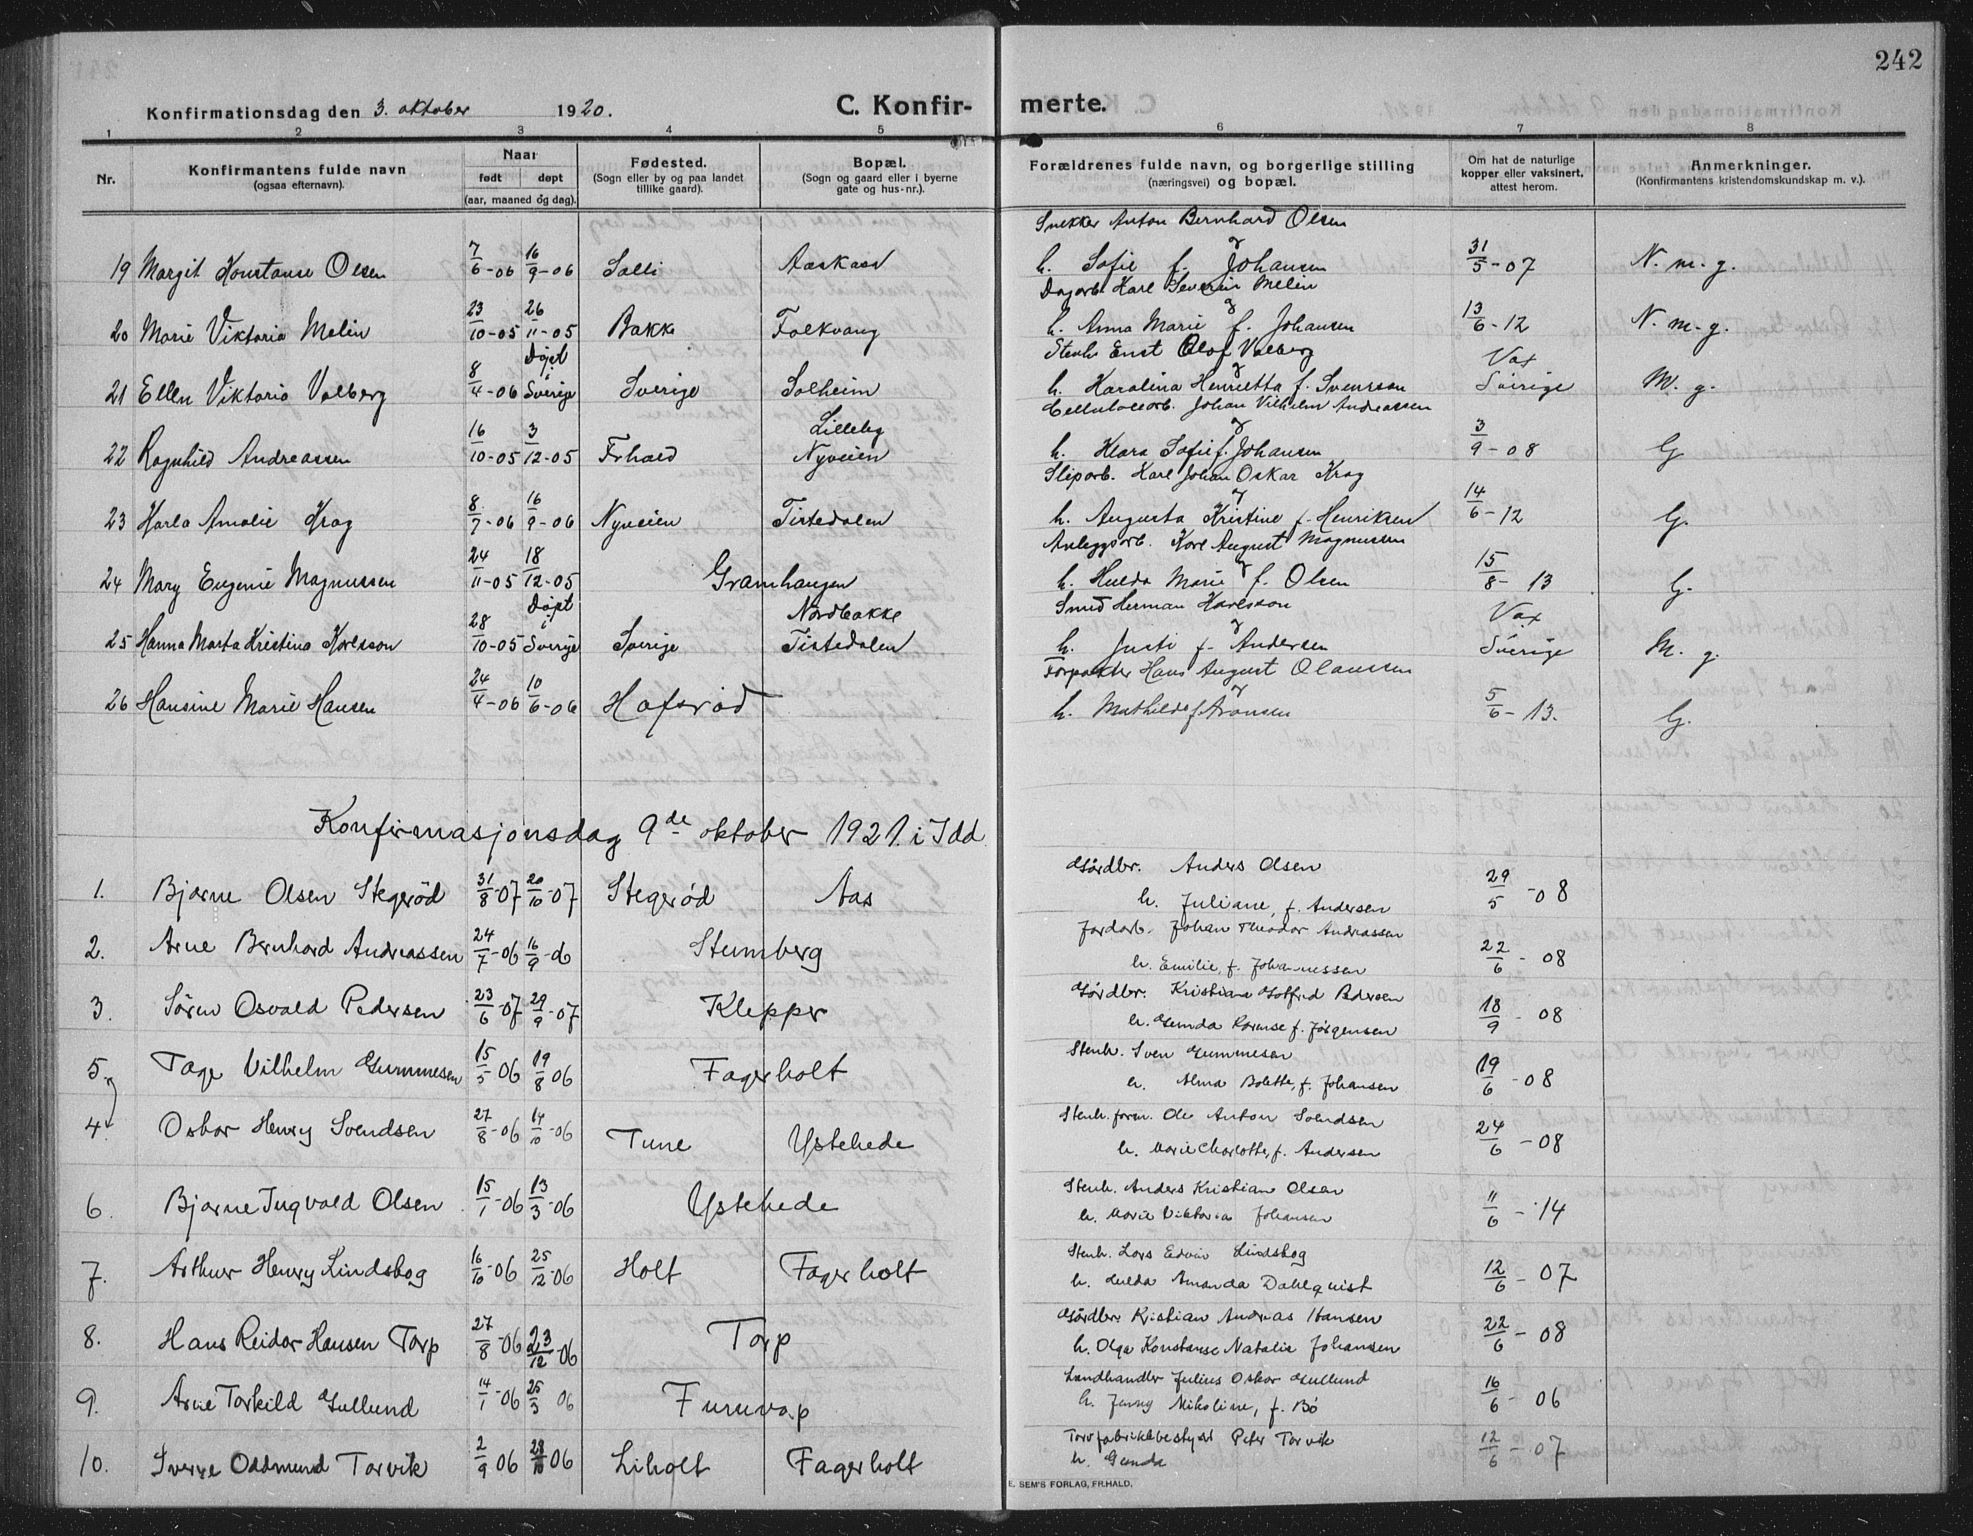 242
Konfirmationsdag den 3. oktober 1920. C. Konfir- merte.
1 2 3 4 5 6 7 8
Nr. Konfirmantens fulde navn (ogsaa efternavn). Naar født døpt (aar, maaned og dag). Fødested. (Sogn eller by og paa landet tillike gaard). Bopæl. (Sogn og gaard eller i byerne gate og hus-nr.). Forældrenes fulde navn, og borgerlige stilling (næringsvei) og bopæl. Om hat de naturlige kopper eller vaksinert, attest herom. Anmerkninger. (Konfirmantens kristendomskundskap m. v.).
Snekker Anton Bernhard Olsen
19 Margit Konstanse Olsen 7/6-06 16/9-06 Solli Aaskasa h. Sofie f. Johansen 31/5-07 N. m. g.
Dagarb. Karl Severin Melin
20 Marie Viktoria Melin 23/10-05 26/11-05 Bakke Folkvang h. Anna Marie f. Johansen 13/6-12 N. m. g.
Stenh. Enst Olof Valberg
21 Ellen Viktoria Valberg 8/4-06 Døpt i Sverige Sverige Solheim h. Karolina Henrietta f. Svensson Vax Sverige M. g.
Cellulosearb. Johan Vilhelm Andreassen
22 Ragnhild Andreassen 16/10-05 3/12-05 Frhald Lilleby Nyveien h. Klara Sofie f. Johansen 3/9-08 G
Sliparb. Karl Johan Oskar Krog
23 Karla Amalie Krog 8/7-06 16/9-06 Nyveien Tistedalen h. Augusta Kristine f. Henriksen 14/6-12 G.
Anleggsarb. Karl August Magnussen
24 Mary Eugenie Magnussen 24/11-05 18/12-05 Gramhaugen h. Hulda Marie f. Olsen 15/8-13 G.
Smed Herman Karlsson
25 Hanna Marta Kristina Karlsson 28/10-05 Døpt i Sverige Sverige Nordbakke Tistedalen h. Justi f. Andersen Vax Sverige M. g.
Forpakter Hans August Olaussen
26 Hansine Marie Hansen 24/4-06 10/6-06 Hofsrød h. Mathilde f Aronsen 5/6-13. G.
Konfirmasjonsdag 9de oktober 1921. i Idd
Gårdbr. Anders Olsen
1. Bjarne Olsen Stegerød 31/8-07 20/10-07 Stegerød Aas h. Juliane, f. Andersen 29/5-08
Jordarb. Johan Theodor Andreassen
2. Arne Bernhard Andreassen 24/7-06 16/9-06 Stumberg h. Emilie, f. Johannessen 22/6-08
Gårdbr. Kristian Gotfred Pedersen
3. Søren Osvald Pedersen 23/6-07 29/9-07 Klepper h. Gunda Lorense f. Jørgensen 18/9-08
Stenh. Sven Gummesen
5. Tage Vilhelm Gummesen 15/5 06 19/8 06 Fagerholt h. Alma Bolette, f. Johansen 19/6-08
Stenh. form. Ole Anton Svendsen
4. Oskar Henry Svendsen 27/8-06 17/10-06 Tune Ystehede h. Marie Charlotte, f. Andersen 24/6-08
Stenh. Anders Kristian Olsen
6. Bjarne Ingvald Olsen 15/1-06 13/3-06 Ystehede h. Marie Viktoria Johansen 11/6-14
Stenh. Lars Edvin Lindskog
7. Arthur Henry Lindskog 16/10-06 25/12-06 Holt Fagerholt h. Hulda Amanda Dahlquist 12/6-07
Gårdbr. Kristian Andreas Hansen
8. Hans Reidar Hansen Torp 27/8-06 23/12-06 Torp h. Olga Konstanse Natalie Johansen 22/6-08
Landhandler Julius Oskar Gullund
9. Arne Torkild Gullund 14/1-06 25/3 06 Furuvap h. Jenny Nikoline, f. Bø 16/6-06
Torvfabrikkbestyrer Peter Torvik
10. Sverre Oddmund Torvik 2/9 06 28/10 06 Liholt Fagerholt h. Gunda 12/6-07
E. SEM'S FORLAG, FR.HALD.